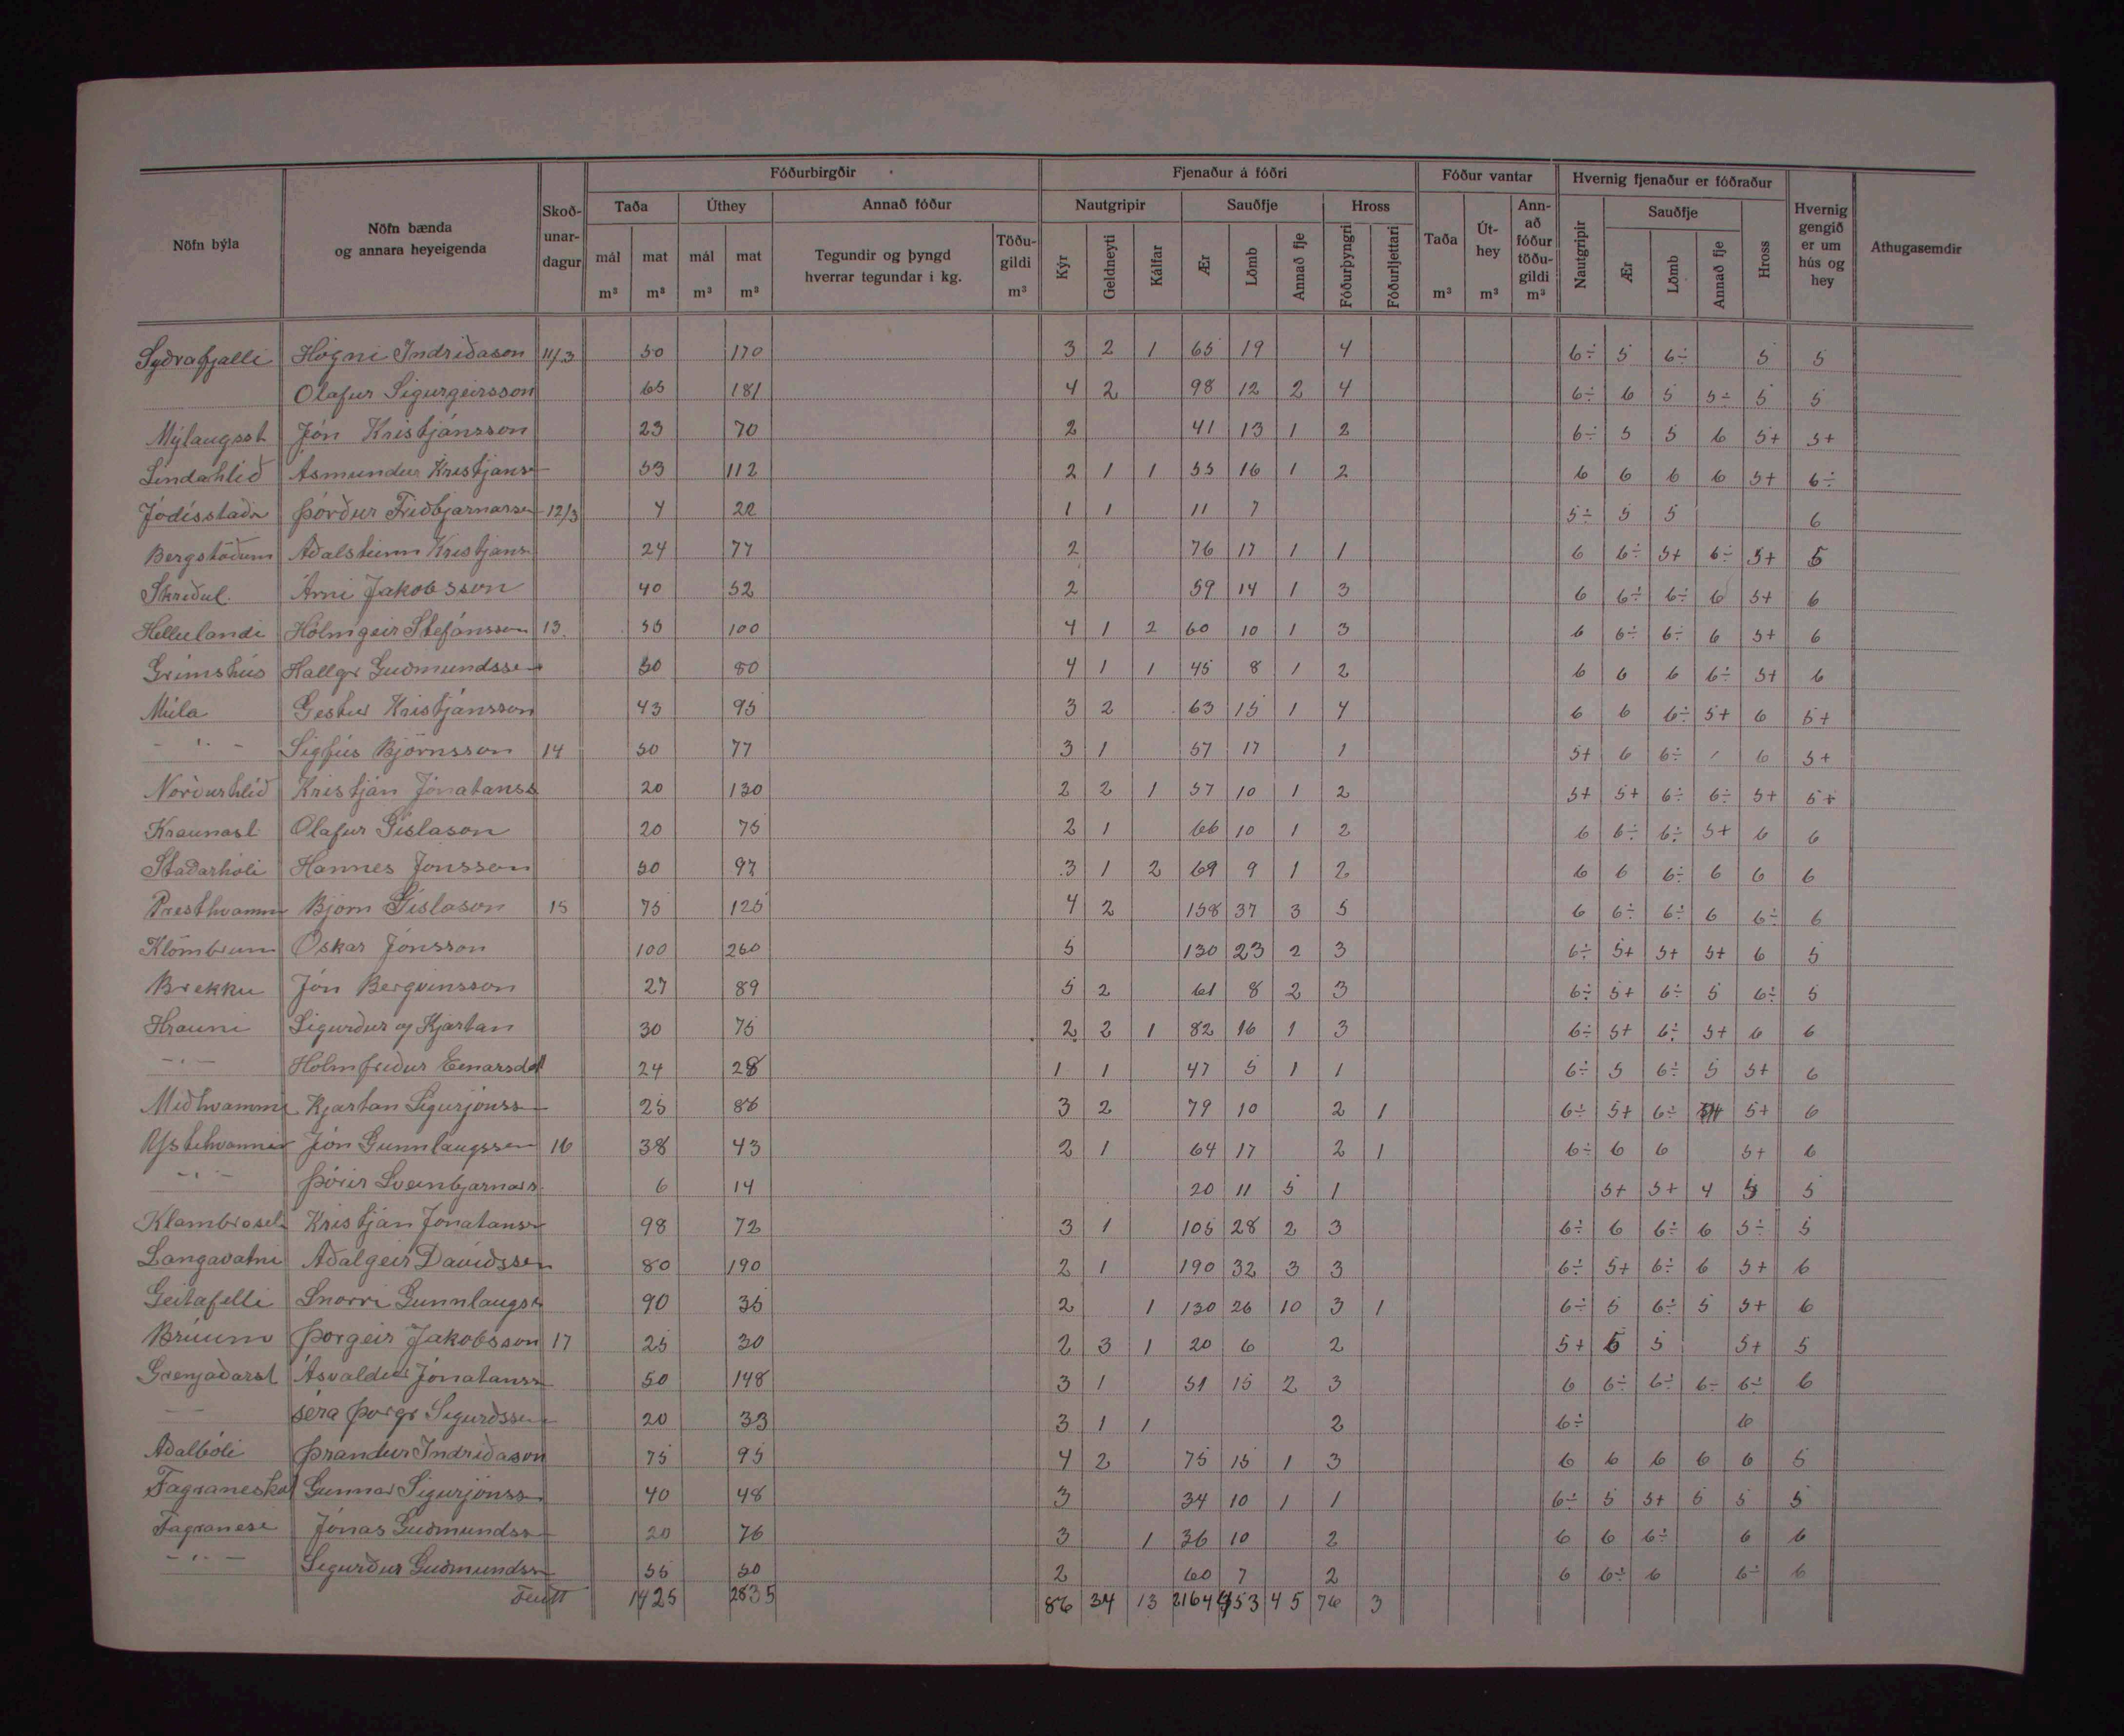 Fóðurbirgðir Fjenaður á fóðri Fóður vantar Hvernig fjenaður er fóðraður
Nöfn býla Nöfn bænda og annara heyeigenda Skoð-unar-dagur Taða Úthey Annað fóður Nautgripir Sauðfje Hross Taða Út-hey Ann-að fóður töðu-gildi Nautgripir Sauðfje Hross Hvernig gengið er um hús og hey Athugasemdir
mál m³ mat m³ mál m³ mat m³ Tegundir og þyngd hverrar tegundar í kg. Töðu-gildi m³ Kýr Geldneyti Kálfar Ær Lömb Annað fje Fóðurþyngri Fóðurljettari m³ m³ m³ Ær Lömb Annað fje
Syðrafjalli Högni Indriðason 11/3 50 170 3 2 1 65 19 4 6÷ 5 6÷ 5 5
Olafur Sigurgeirsson 65 181 4 2 98 12 2 4 6÷ 6 5 5÷ 5 5
Mýlaugsst Jón Kristjánsson 23 70 2 41 13 1 2 6÷ 5 5 6 5+ 5+
Lindahlið Asmundur Kristjáns 53 112 2 1 1 55 16 1 2 6 6 6 6 5+ 6÷
Jódísstaðr Þórður Friðbjarnarson 12/3 4 22 1 1 11 7 5÷ 5 5 6
Bergstöðum Aðalsteinn Kristjáns 24 77 2 76 17 1 1 6 6÷ 5+ 6÷ 5+ 5
Skriðul. Árni Jakobsson 40 52 2 59 14 1 3 6 6÷ 6÷ 6 5+ 6
Hellulandi Hólmgeir Stefánsson 13. 55 100 4 1 2 60 10 1 3 6 6÷ 6÷ 6 5+ 6
Grímshús Hallgr Guðmundsson 50 80 4 1 1 45 8 1 2 6 6 6 6÷ 5+ 6
Múla Gestur Kristjánsson 43 95 3 2 63 15 1 4 6 6 6÷ 5+ 6 5+
- " - Sigfús Björnsson 14 50 77 3 1 57 17 1 5+ 6 6÷ / 6 5+
Norðurhlíð Kristján Jónatanss 20 130 2 2 1 57 10 1 2 5+ 5+ 6÷ 6÷ 5+ 5+
Hraunasl Olafur Gíslason 20 75 2 1 66 10 1 2 6 6÷ 6÷ 5+ 6 6
Staðarhóli Hannes Jónsson 50 97 3 1 2 69 9 1 2 6 6 6÷ 6 6 6
Presthvamm Björn Gíslason 15 75 125 4 2 158 37 3 5 6 6÷ 6÷ 6 6÷ 6
Klömbrum Óskar Jónsson 100 260 5 130 23 2 3 6÷ 5+ 5+ 5+ 6 5
Brekku Jón Bergvinsson 27 89 5 2 61 8 2 3 6÷ 5+ 6÷ 5 6÷ 5
Hrauni Sigurður og Kjartan 30 75 2 2 1 82 16 1 3 6÷ 5+ 6÷ 5+ 6 6
- " - Holmfriður Einarsdott 24 28 1 1 47 5 1 1 6÷ 5 6÷ 5 5+ 6
Miðhvammi Kjartan Sigurjónss 25 86 3 2 79 10 2 1 6÷ 5+ 6÷ 5+ 6
Ystahvammi Jón Gunnlaugsson 16 38 43 2 1 64 17 2 1 6÷ 6 6 5+ 6
- " - Þórir Sveinbjarnars. 6 14 20 11 5 1 5+ 5+ 4 5 5
Klambrasel Kristján Jónatanss 98 72 3 1 105 28 2 3 6÷ 6 6÷ 6 5÷ 5
Langavatni Aðalgeir Davíðsson 80 190 2 1 190 32 3 3 6÷ 5+ 6÷ 6 5+ 6
Geitafelli Snorri Gunnlaugss 90 35 2 1 130 26 10 3 1 6÷ 5 6÷ 5 5+ 6
Brúum Þorgeir Jakobsson 17 25 30 2 3 1 20 6 2 5+ 5 5 5+ 5
Grenjaðarst Ásvaldur Jónatanss 50 148 3 1 51 15 2 3 6 6÷ 6÷ 6÷ 6÷ 6
— séra Þorgr Sigurðsson 20 33 3 1 1 2 6÷ 6
Aðalbóli Þrandur Indriðason 75 95 4 2 75 15 1 3 6 6 6 6 6 5
Fagraneskot Gunnar Sigurjónss 40 48 3 34 10 1 1 6÷ 5 5+ 5 5 5
Fagranesi Jónas Guðmundss 20 76 3 1 36 10 2 6 6 6÷ 6 6
- " - Sigurður Guðmundss 55 50 2 60 7 2 6 6÷ 6 6÷ 6
Flutt 1425 2835 86 34 13 2164 453 45 76 3